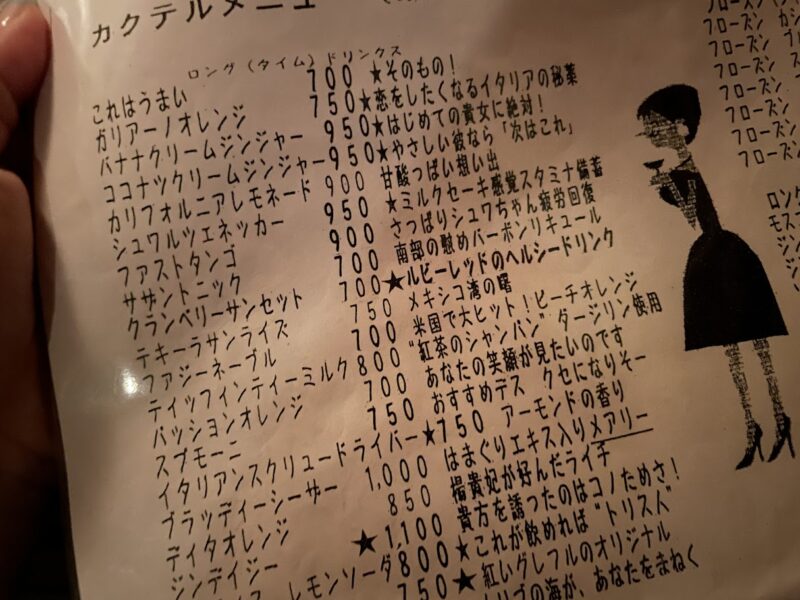 カクテルメニュー
ロング（タイム）ドリンクス
これはうまい 700 ★そのもの！
ガリアーノオレンジ 750 ★恋をしたくなるイタリアの秘薬
バナナクリームジンジャー 950 ★はじめての貴女に絶対！
ココナツクリームジンジャー 950 ★やさしい彼なら「次はこれ」
カリフォルニアレモネード 900 甘酸っぱい想い出
シュワルツェネッカー 950 ★ミルクセーキ感覚スタミナ備蓄
ファストタンゴ 900 さっぱりシュワちゃん疲労回復
ササントニック 700 南部の慰めバーボンリキュール
クランベリーサンセット 700 ★ルビーレッドのヘルシードリンク
テキーラサンライズ 750 メキシコ湾の曙
ファジーネーブル 700 米国で大ヒット！ピーチオレンジ
ティッフィンティーミルク 800 “紅茶のシャンパン” ダージリン使用
パッションオレンジ 700 あなたの笑顔が見たいのです
スプモーニ 750 おすすめデス クセになりそー
イタリアンスクリュードライバー ★750 アーモンドの香り
ブラッディーシーザー 1,000 はまぐりエキス入りメアリー
ディタオレンジ 850 楊貴妃が好んだライチ
ジンデイジー ★1,100 貴方を誘ったのはコノためさ！
レモンソーダ 800 ★これが飲めれば“トリス人”
750 ★紅いグレフルのオリジナル
の海が、あなたをまねく
フローズン
フローズン カシ
フローズン
フローズン ス
フローズン
フローズン
フローズン
フローズン
ロング
モス
ジン
ジン